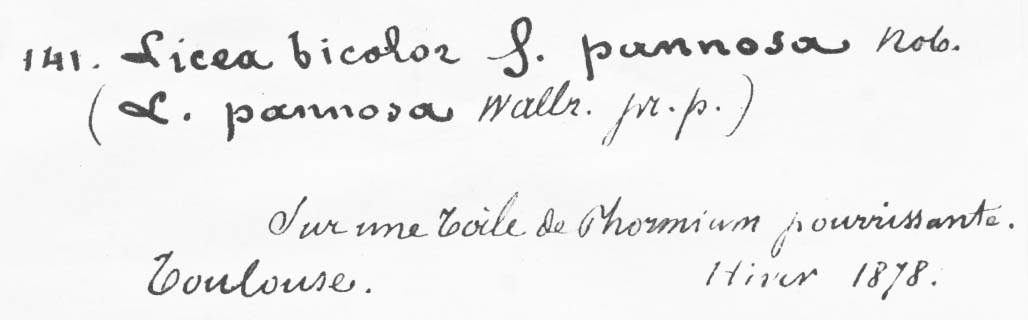 141. Licea bicolor f. pannosa Nob.
(L. pannosa Wallr. pr. p.)
Sur une toile de Phormium pourrissante.
Toulouse. Hiver 1878.